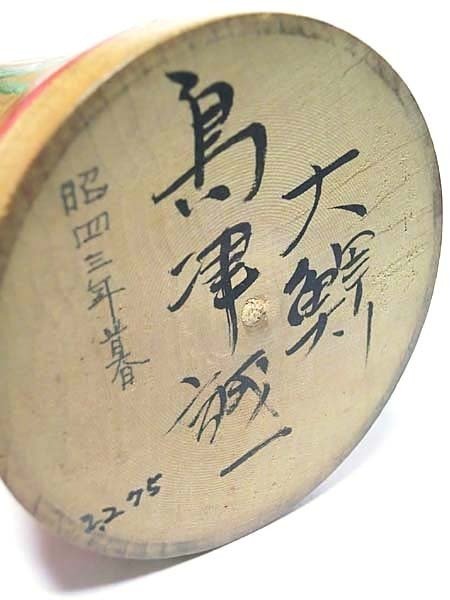 大鰐
島津誠一
昭四三年暮
2,275